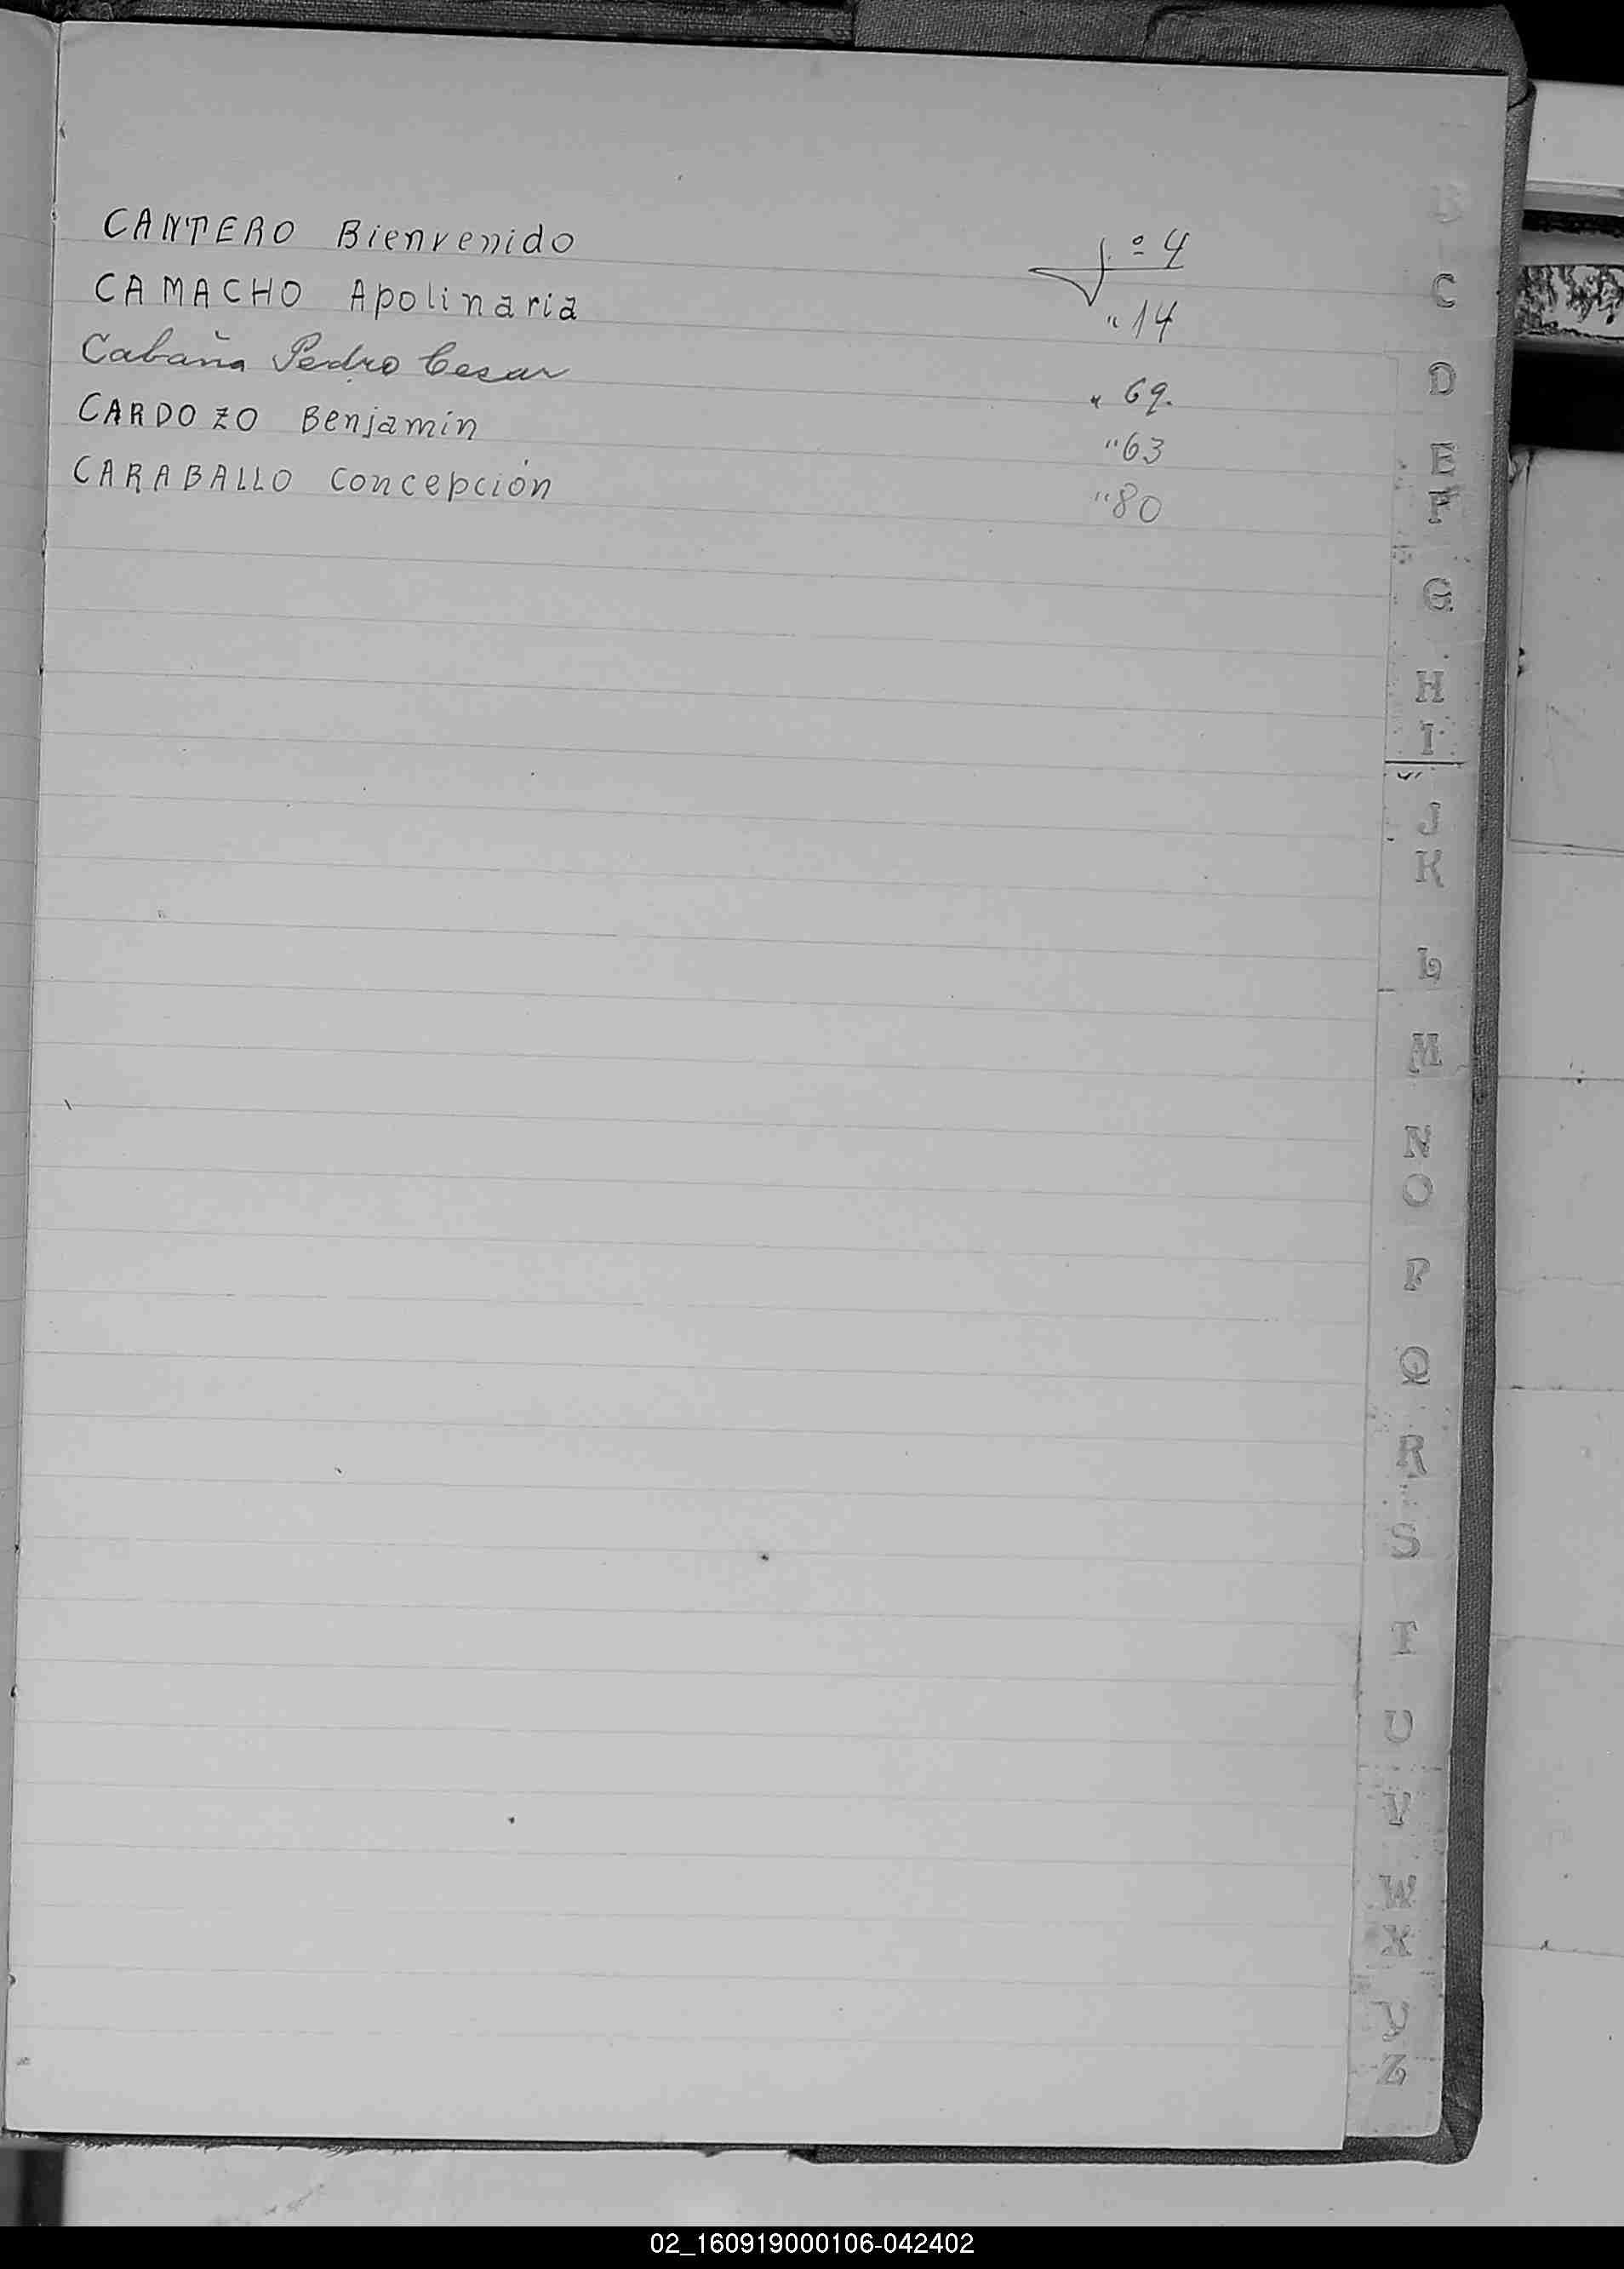 CANTERO Bienvenido f.º 4
CAMACHO Apolinaria " 14
Cabaña Pedro Cesar " 69.
CARDOZO Benjamín " 63
CARABALLO Concepción " 80
B
C
D
E
F
G
H
I
J
K
L
M
N
O
P
Q
R
S
T
U
V
W
X
Y
Z
02_160919000106-042402